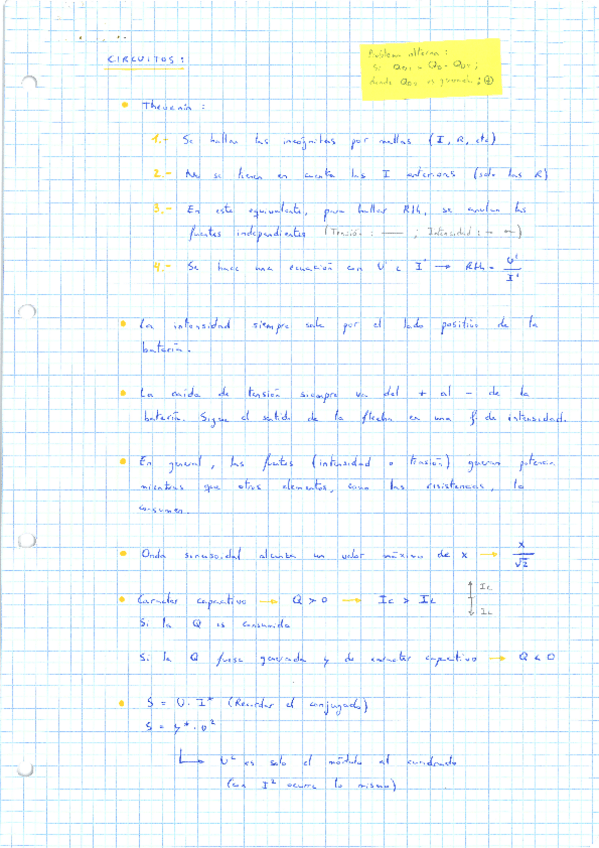 CIRCUITOS:
Problema alterna:
Thevenin:
1.- Se hallan las incógnitas por mallas (I, R, etc)
2.- No se tienen en cuenta las I anteriores (solo las R)
3.- En este equivalente, para hallar Rth, se anulan las
fuentes independientes (Tensión: — ; Intensidad: - -)
4.- Se hace una ecuación con U' e I' → Rth = U'/I'
La intensidad siempre sale por el lado positivo de la
batería.
La caída de tensión siempre va del + al - de la
batería. Sigue el sentido de la flecha en una f. de intensidad.
En general, las fuentes (intensidad o tensión) generan potencia
mientras que otros elementos, como las resistencias, la
consumen.
Onda sinusoidal alcanza un valor máximo de x → x/√2
Caracter capacitivo → Q > 0 → Ic > IL
Ic
IL
Si la Q es consumida
Si la Q fuese generada y de caracter capacitivo → Q < 0
S = U · I* (Recordar el conjugado)
S = Y* · U²
U² es solo el módulo al cuadrado
(con I² ocurre lo mismo)